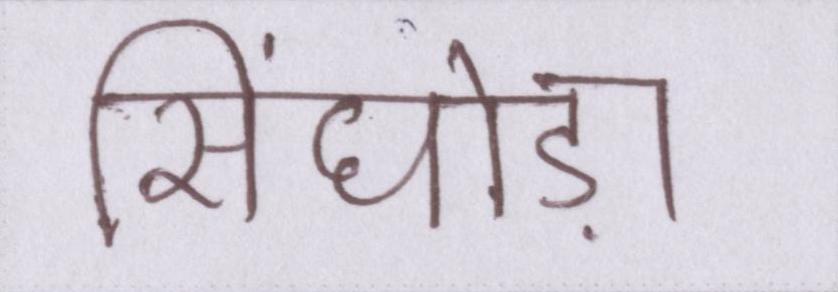 सिंघोड़ा